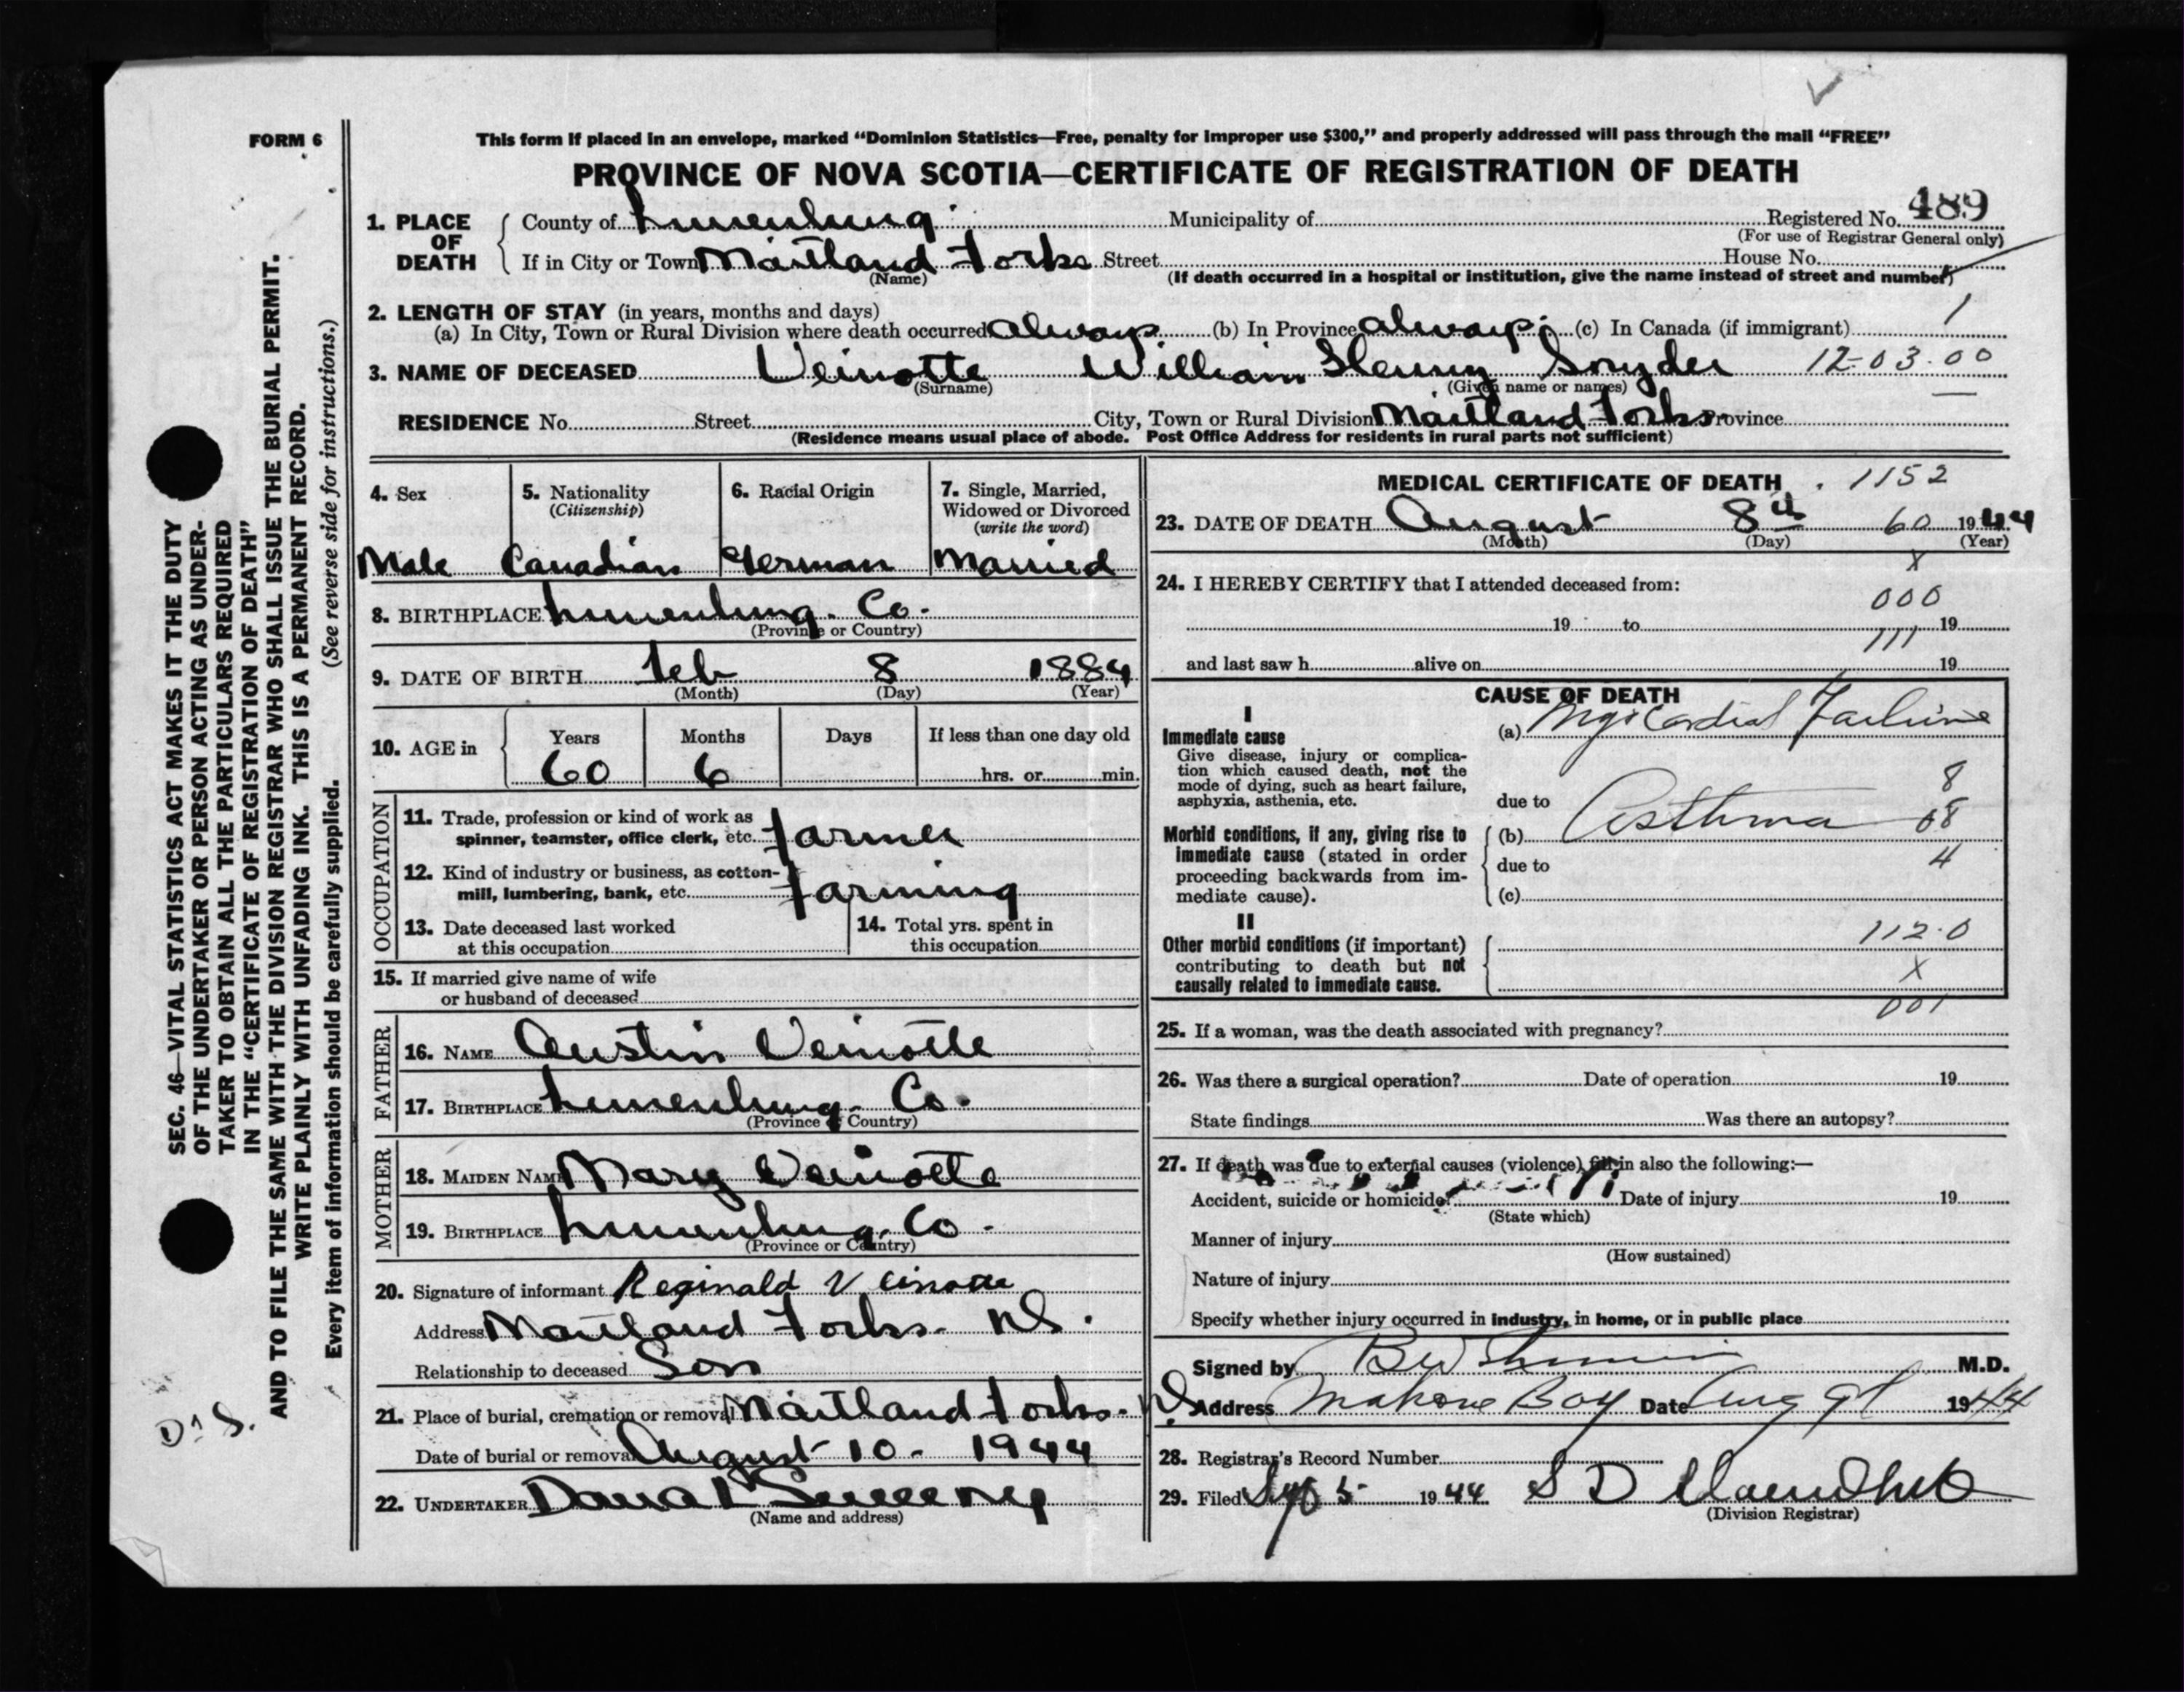 FORM 6
This form if placed in an envelope, marked “Dominion Statistics—Free, penalty for improper use $300,” and properly addressed will pass through the mail “FREE”
PROVINCE OF NOVA SCOTIA—CERTIFICATE OF REGISTRATION OF DEATH
1. PLACE OF DEATH County of Lunenburg Municipality of Registered No. 489
(For use of Registrar General only)
If in City or Town Maitland Forks Street House No.
(Name) (If death occurred in a hospital or institution, give the name instead of street and number)
2. LENGTH OF STAY (in years, months and days)
(a) In City, Town or Rural Division where death occurred always (b) In Province always (c) In Canada (if immigrant) 1
3. NAME OF DECEASED Veinotte William Henry Snyder 12-03-00
(Surname) (Given name or names)
RESIDENCE No. Street City, Town or Rural Division Maitland Forks Province
(Residence means usual place of abode. Post Office Address for residents in rural parts not sufficient)
4. Sex
Male
5. Nationality
(Citizenship)
Canadian
6. Racial Origin
German
7. Single, Married,
Widowed or Divorced
(write the word)
Married
8. BIRTHPLACE Lunenburg Co.
(Province or Country)
9. DATE OF BIRTH Feb 8 1884
(Month) (Day) (Year)
10. AGE in Years Months Days If less than one day old
60 6 hrs. or min.
OCCUPATION
11. Trade, profession or kind of work as
spinner, teamster, office clerk, etc. Farmer
12. Kind of industry or business, as cotton-
mill, lumbering, bank, etc. Farming
13. Date deceased last worked
at this occupation
14. Total yrs. spent in
this occupation
15. If married give name of wife
or husband of deceased
FATHER
16. NAME Austin Veinotte
17. BIRTHPLACE Lunenburg Co.
(Province or Country)
MOTHER
18. MAIDEN NAME Mary Veinotte
19. BIRTHPLACE Lunenburg Co.
(Province or Country)
20. Signature of informant Reginald Veinotte
Address Maitland Forks N.S.
Relationship to deceased Son
21. Place of burial, cremation or removal Maitland Forks N.S.
Date of burial or removal August 10 - 1944
22. UNDERTAKER Sweeney
(Name and address)
MEDICAL CERTIFICATE OF DEATH 1152
23. DATE OF DEATH August 8th 60 1944
(Month) (Day) (Year)
X
24. I HEREBY CERTIFY that I attended deceased from:
000
19 to 19
111
and last saw h alive on 19
CAUSE OF DEATH
I
Immediate cause
Give disease, injury or complica-
tion which caused death, not the
mode of dying, such as heart failure,
asphyxia, asthenia, etc.
(a) Myocardial Failure
8
due to
Morbid conditions, if any, giving rise to
immediate cause (stated in order
proceeding backwards from im-
mediate cause).
(b) Asthma 08
due to 4
(c)
II
Other morbid conditions (if important)
contributing to death but not
causally related to immediate cause.
112.0
X
001
25. If a woman, was the death associated with pregnancy?
26. Was there a surgical operation? Date of operation 19
State findings Was there an autopsy?
27. If death was due to external causes (violence) fill in also the following:—
Accident, suicide or homicide? Date of injury 19
(State which)
Manner of injury
(How sustained)
Nature of injury
Specify whether injury occurred in industry, in home, or in public place
Signed by M.D.
Address Mahone Bay Date Aug 9th 1944
28. Registrar's Record Number
29. Filed Sept 5 1944 S D
(Division Registrar)
SEC. 46—VITAL STATISTICS ACT MAKES IT THE DUTY
OF THE UNDERTAKER OR PERSON ACTING AS UNDER-
TAKER TO OBTAIN ALL THE PARTICULARS REQUIRED
IN THE “CERTIFICATE OF REGISTRATION OF DEATH”
AND TO FILE THE SAME WITH THE DIVISION REGISTRAR WHO SHALL ISSUE THE BURIAL PERMIT.
WRITE PLAINLY WITH UNFADING INK. THIS IS A PERMANENT RECORD.
Every item of information should be carefully supplied. (See reverse side for instructions.)